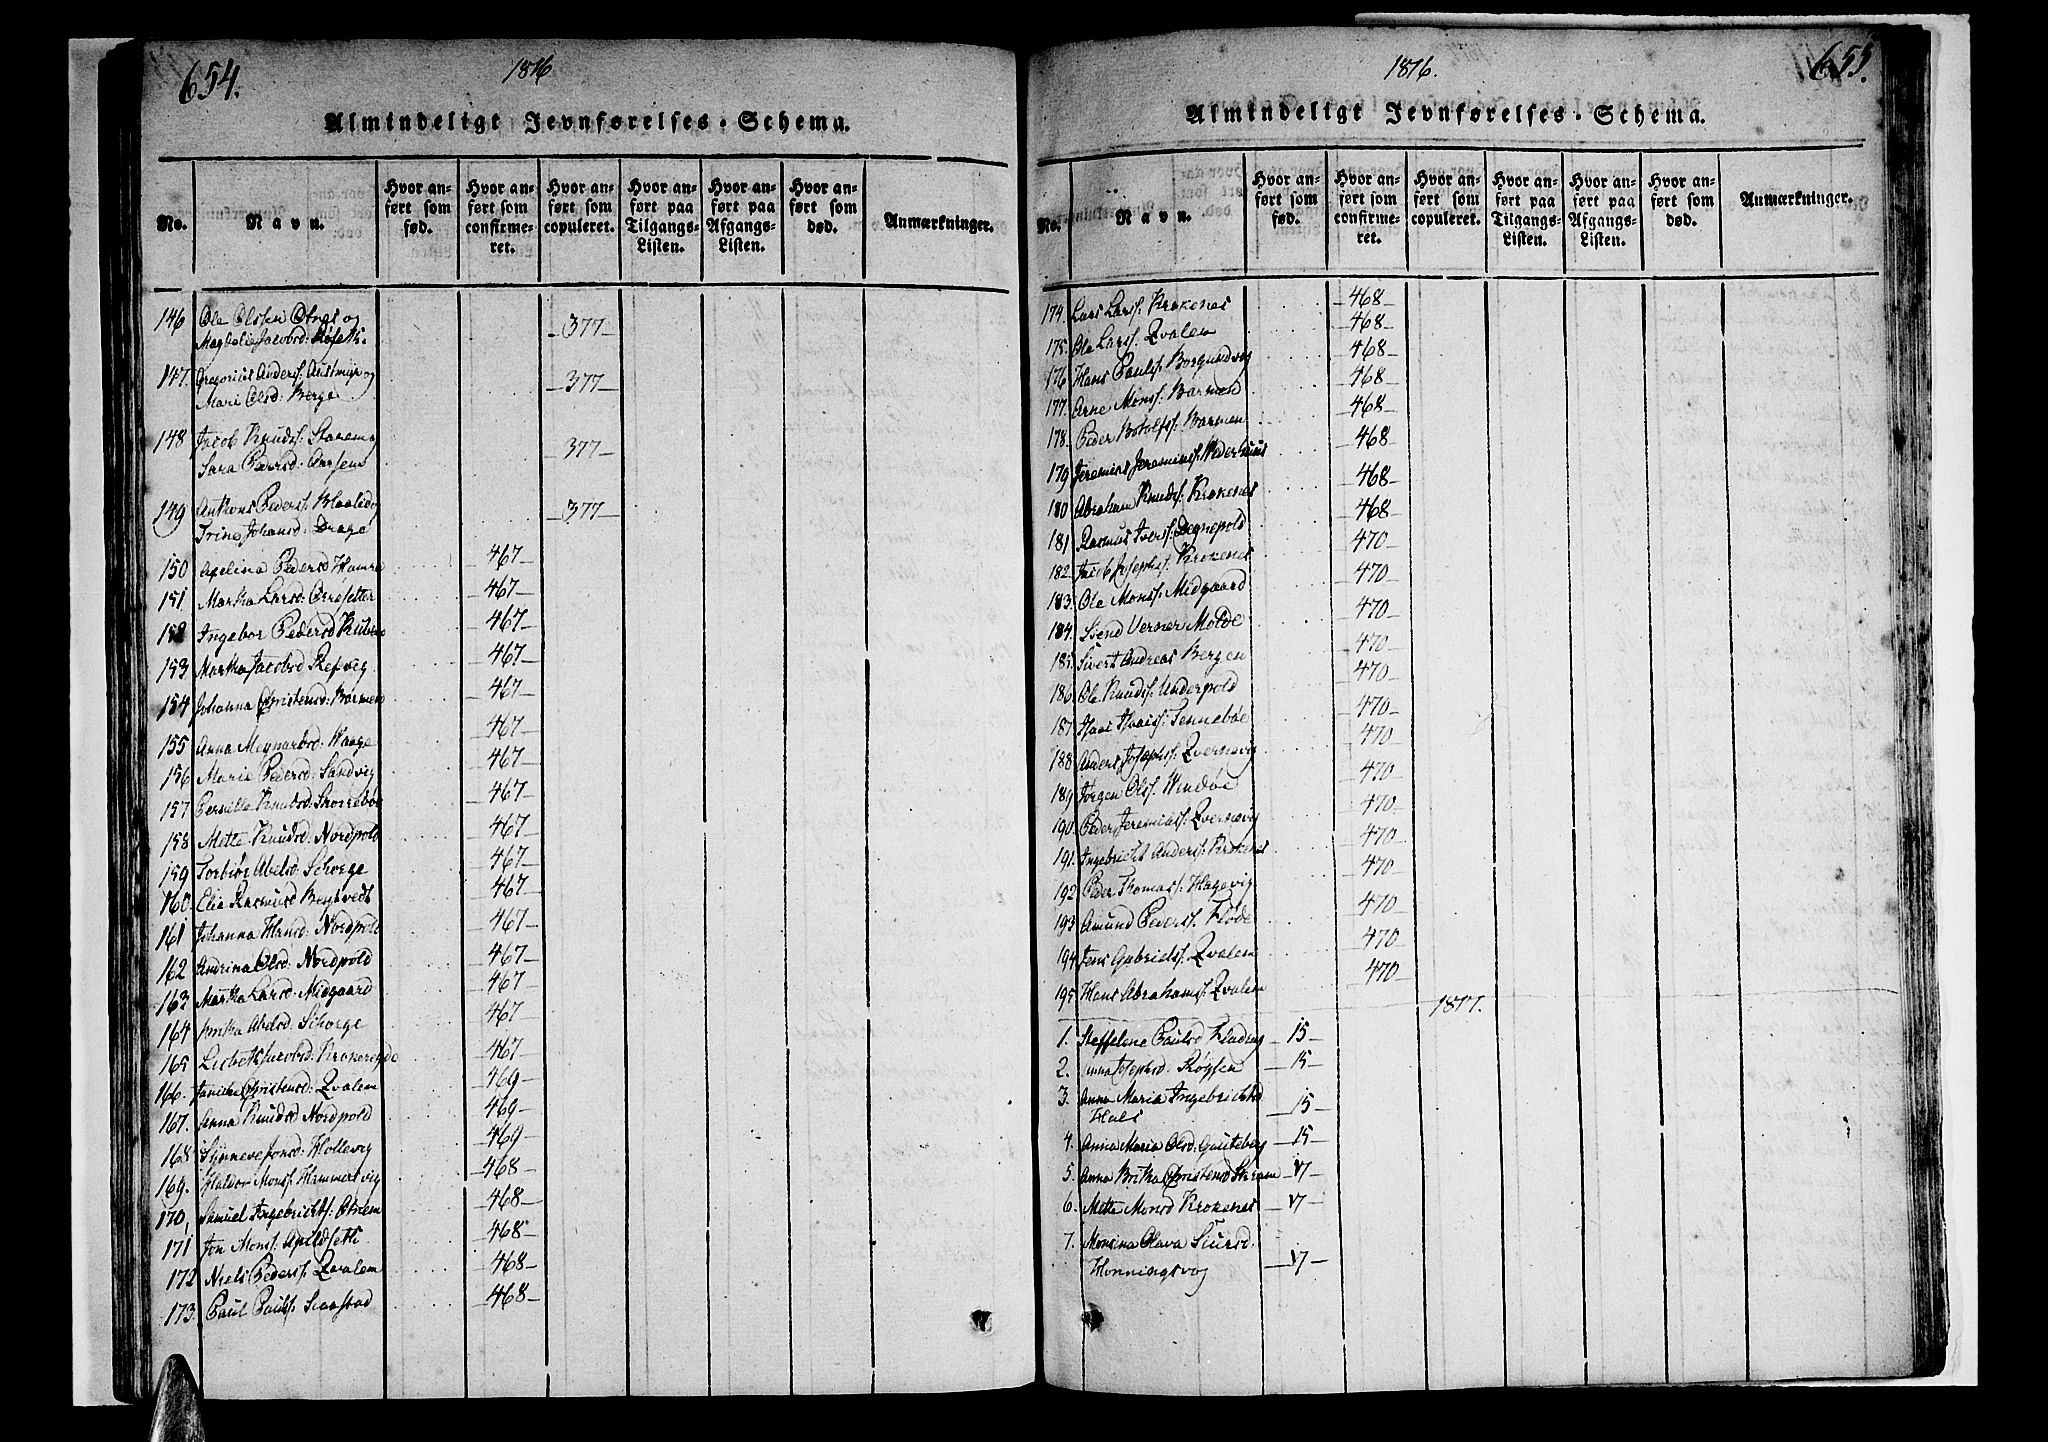 654.
1816
Almindeligt Jevnførelses-Schema.
No.
Navn.
Hvor anført som fød.
Hvor anført som confirmeret.
Hvor anført som copuleret.
Hvor anført paa Tilgangs-Listen.
Hvor anført paa Afgangs-Listen.
Hvor anført som død.
Anmærkninger.
146 Ole Olsen Otnes og
Magdelie Jacobsd: Røfeth. 377
147. Gregorius Anders: Austmyr og
Mari Olsd: Berge 377
148 Jacob Knuds: Starem og
Sara Pedersd: 377
149 Anthons Peders: Blaalid og
Trine Johansd: Drage 377
150 Axelina Pedersd Hamre 467
151 Martha Larsd: Osresetter 467
152 Ingebor Pedersd 467
153 Martha Jacobsd Refvig 467
154 Johanna Christensd: Barmen 467
155 Anna Meynardsd: Waage 467
156 Marie Pedersd: Sandvig 467
157 Pernille Knudsd: Skorrebøe 467
158 Mette Knudsd: Nordpold 467
159 Torbiør Abelsd: Schorge 467
160 Elie Rasmusd 467
161 Johanna Hansd: Nordpold 467
162 Andrina Olsd: Nordpold 467
163 Martha Larsd: Midgaard 467
164 Abelsd: Schorge 467
165 Lisbeth Jacobsd: 467
166. Janicke Christensd: Qvalem 469
167. Anna Knudsd Nordpold 469
168 Synneve Jonsd: Hollevig 469
169. Haldor Mons: Hammersvig 468
170, Samuel Ingebrigts: 468
171 Jon Mons: Apildsetk 468
172 Niels Peders: Qvalem 468
173. Paul Pauls: 468
1816.
655.
Almindeligt Jevnførelses-Schema.
No.
Navn.
Hvor anført som fød.
Hvor anført som confirmeret.
Hvor anført som copuleret.
Hvor anført paa Tilgangs-Listen.
Hvor anført paa Afgangs-Listen.
Hvor anført som død.
Anmærkninger.
174. Lars Lars: Krokenes 468
175. Ole Lars: Qvalem 468
176 Hans Pauls: Borgundvog 468
177. Arne Mons: Barmen 468
178. Peder Botolfs: Barmen 468
179 Jeremias Jeremias: Wederhuus 468
180 Abraham Knuds: Krokenes 468
181 Rasmus Ivers: Degnepold 468
182. Jacob Josephs: Krokenes 470
183. Ole Mons: Midgaard 470
184. Svend Verner Molde 470
185. Sivert Andreas Bergen 470
186. Ole Knuds: Underpold 470
187 Isaac Isacs: Tennebøe 470
188 Anders Josephs: Qvernevig 470
189 Jørgen Ols: Windøe 470
190. Peder Jeremias: Qvernevig 470
191. Ingebricht Anders: Krokenes 470
192 Peder Thomas: Hagevig 470
193 Amund Peders: Flode 470
194 Jens Gabriels: Qvalem 470
195 Hans Abrahams: Qvalem 470
1817.
1. Steffelene Paulsd 15
2. Anna Josephsd: Røysen 15
3. Anna Maria Ingebrichtsd
Hals 15
4. Anna Maria Olsd: Gauteberg 15
5. Anna Britha Christensd 17
6. Mette Monsd Krokenes 17
7. Monsina Olava Siursd:
Honningsvog 17